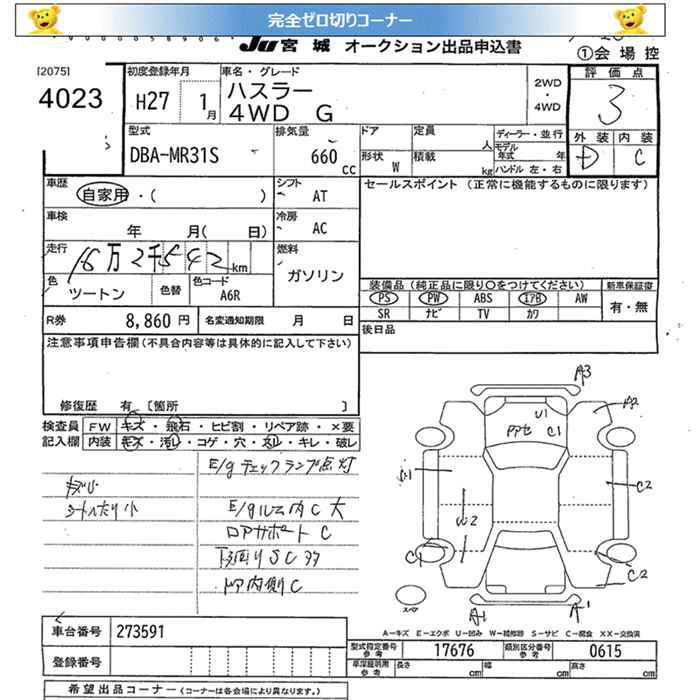 完全ゼロ切りコーナー
JU宮城 オークション出品申込書
①会場控
[2075]
4023
初度登録年月
H27 1月
車名・グレード
ハスラー
4WD G
2WD
・
4WD
評価点
3
外装 内装
D C
型式
DBA-MR31S
排気量
660 cc
ドア 定員 人
形状 W 積載 kg
ディーラー・並行
モデル年式 年
ハンドル 左・右
車歴
自家用・( )
シフト AT
車検
年 月( 日)
冷房 AC
走行
16万2千542km
燃料
ガソリン
色 ツートン 色替 色コード A6R
R券 8,860円 名変通知期限 月 日
セールスポイント (正常に機能するものに限ります)
装備品(純正品に限り○をつけてください) 新車保証書
PS PW ABS エアB AW 有・無
SR ナビ TV カワ
後日品
注意事項申告欄(不具合内容等は具体的に記入して下さい)
修復歴 有 〔箇所 〕
検査員記入欄
FW キズ・飛石・ヒビ割・リペア跡・×要
内装 キズ・汚レ・コゲ・穴・スレ・キレ・破レ
E/gチェックランプ点灯
キズ小
シートヘたり小
E/gルーム内C大
ロアサポートC
下廻りSC多
ドア内側C
A3
U1
C1
A2
U1
C2
W2
C1
C2
スペア
A1
A1
A-キズ E-エクボ U-凹み W-補修跡 S-サビ C-腐食 XX-交換済
車台番号 273591
登録番号
型式指定番号 参考 17676 類別区分番号 参考 0615
車庫証明用 参考 長さ cm 幅 cm 高さ cm
希望出品コーナー(コーナーは各会場により異なります。)